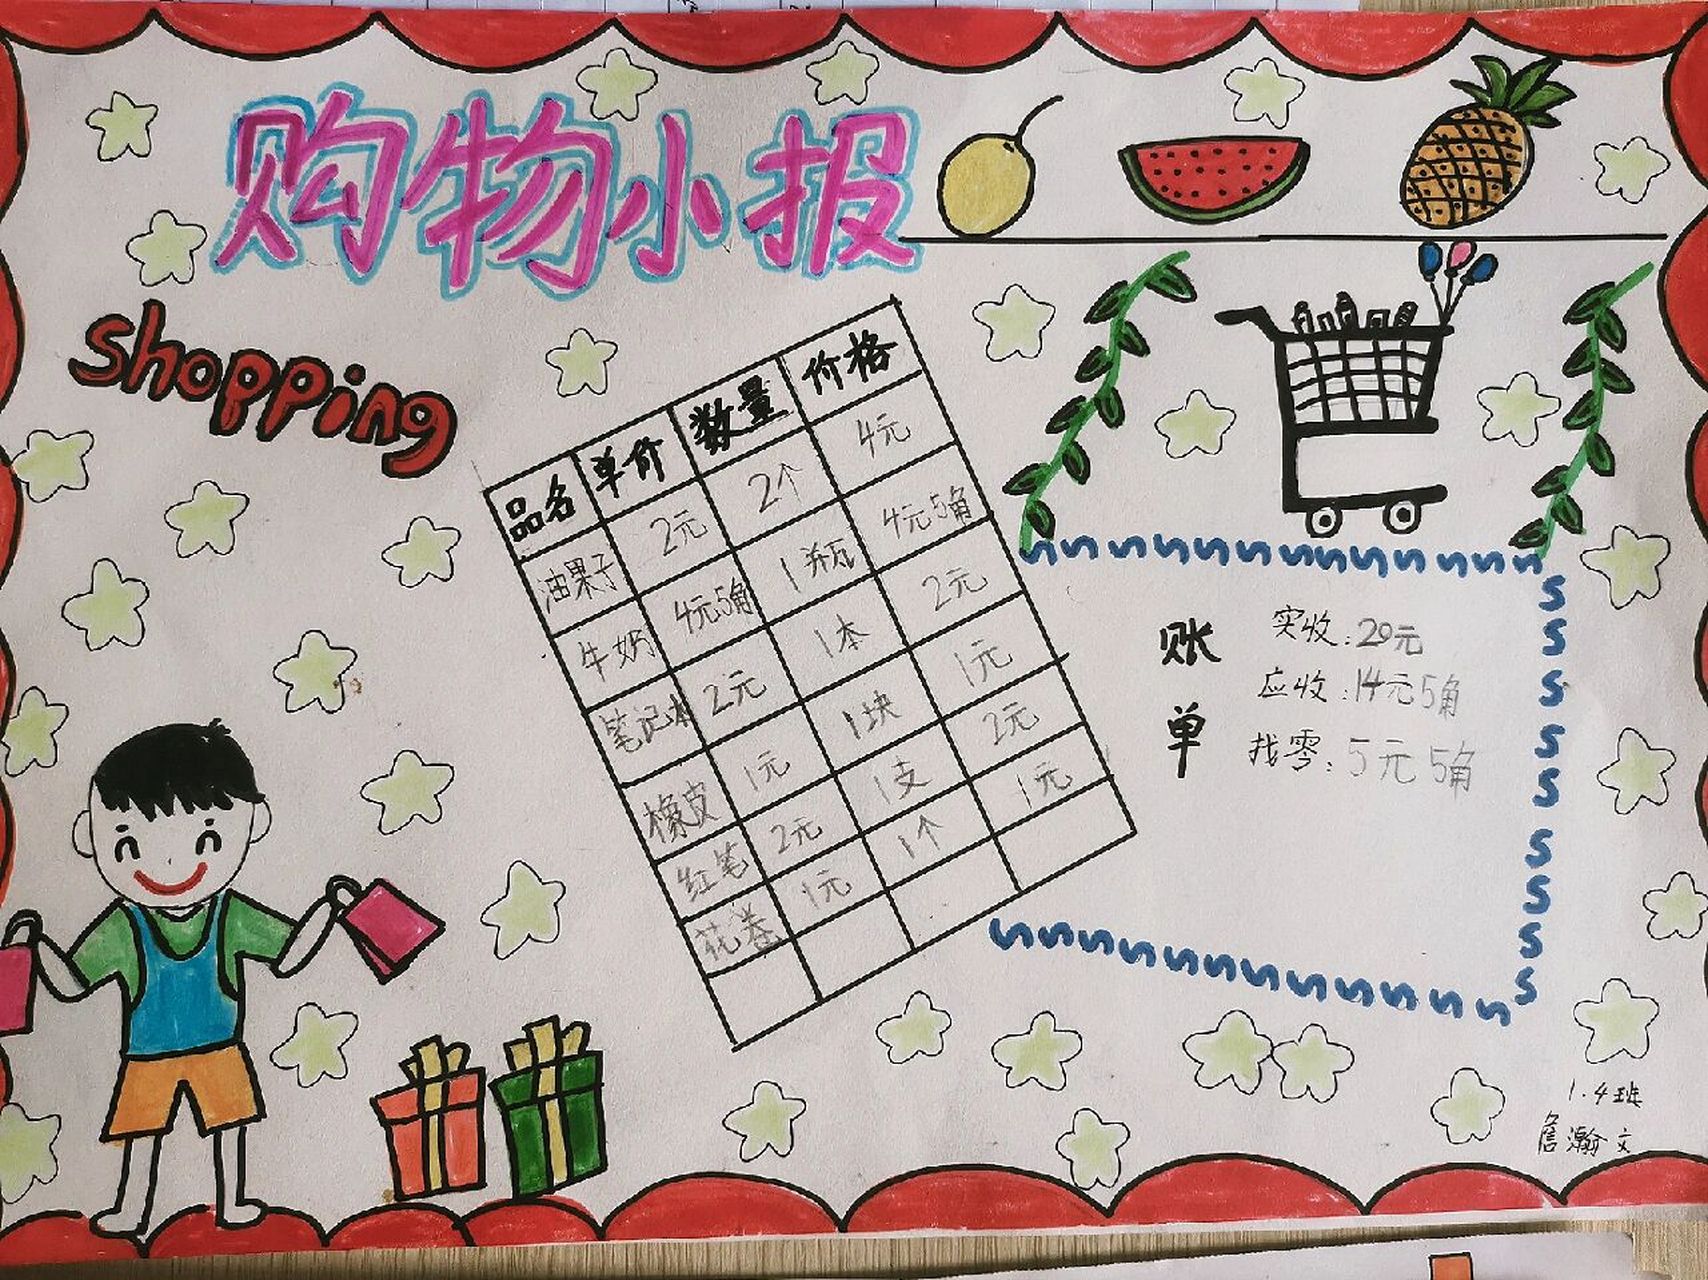 购物小报
shopping
品名 单价 数量 价格
油果子 2元 2个 4元
牛奶 4元5角 1瓶 4元5角
笔记本 2元 1本 2元
橡皮 1元 1块 1元
红笔 2元 1支 2元
花卷 1元 1个 1元
账单
实收:20元
应收:14元5角
找零:5元5角
1.4班
詹瀚文